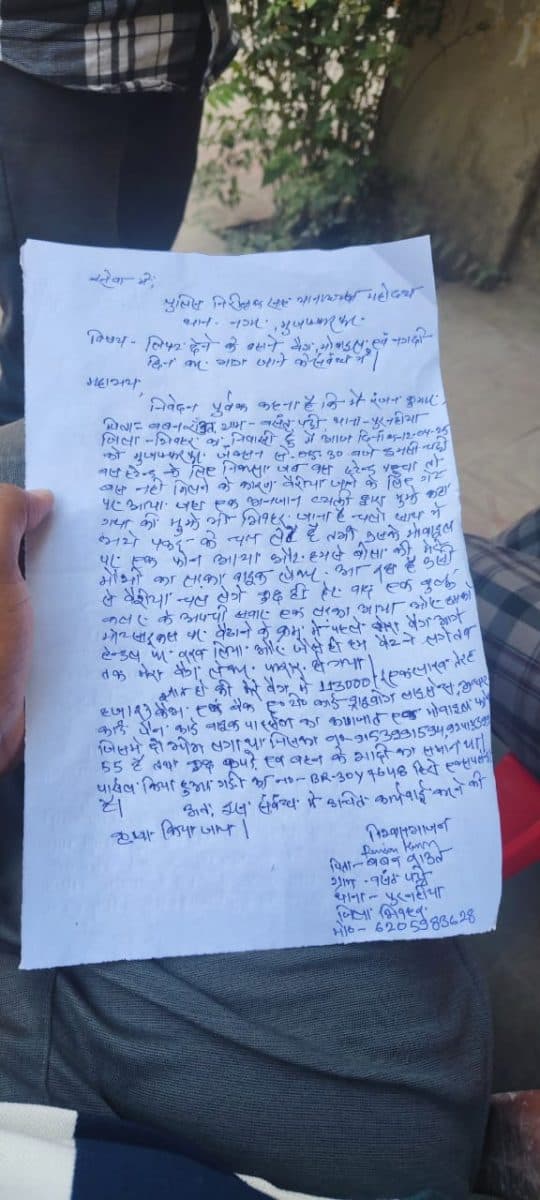 सेवा में,
पुलिस निरीक्षक सह थानाध्यक्ष महोदय
थाना - नगर, मुजफ्फरपुर
विषय - लिफ्ट देने के बहाने बैग, मोबाइल एवं नगदी
छिन कर भाग जाने के संबंध में।
महाशय,
निवेदन पूर्वक कहना है कि मैं रंजन कुमार
पिता - बबन राउत ग्राम - बसंत पट्टी थाना - पुरनहिया
जिला - शिवहर का निवासी हूँ मैं आज दिनांक
को मुजफ्फरपुर जंक्शन से 30 बजे इमली चट्टी
बस स्टैण्ड के लिए निकला जब बस स्टैण्ड पहुचा तो
बस नहीं मिलने के कारण बैरीया जाने के लिए गेट
पर आया। जहा एक अनजान व्यक्ति द्वारा मुझे कहा
गया की मुझे भी शिवहर जाना है चलो साथ में
चल लेते है तभी उसके मोबाइल
पर एक फोन आया और हमसे बोला की मेरी
मौसी का लरका बाइक लेकर आ रहा है उसी
से बैरीया चल लेंगे कुछ ही देर बाद एक
कलर के अपाची सवार एक लरका आया और हमको
मोटरसाइकल पर बैठाने के क्रम में पहले मेरा बैग आगे
हैन्डल पर रख लिया और जैसे ही हम बैठने लगे तब
तक मेरा बैग लेकर फरार हो गया।
साथ ही की मेरे बैग में 113000/ (एक लाख तेरह
हजार) कैश, एक बैंक का कार्ड ड्राइविंग लाइसेंस, आधार
कार्ड पैन कार्ड बाइक का कागजात एक मोबाइल फोन
जिसमे दो सीम लगा था जिसका नं०-
55 है तथा कुछ कपड़े एवं बहन के शादी का समान था।
किया हुआ गाड़ी का नं०- BR-30Y 7648 हिरो
है।
अतः इस संबंध में उचित कार्यवाई करने की
कृपा किया जाय।
विश्वासभाजन
Ranjan Kumar
पिता - बबन राउत
ग्राम - बसंत पट्टी
थाना - पुरनहिया
जिला शिवहर
मो० - 6205983628